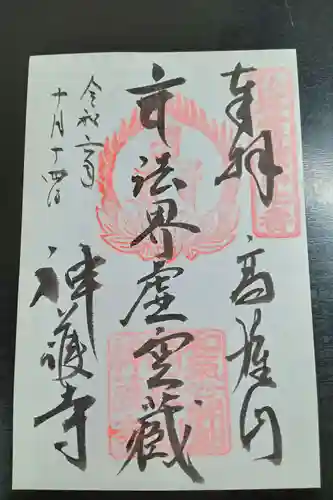 奉拝 高雄山
法界虚空蔵
令和年
十月十四日
神護寺